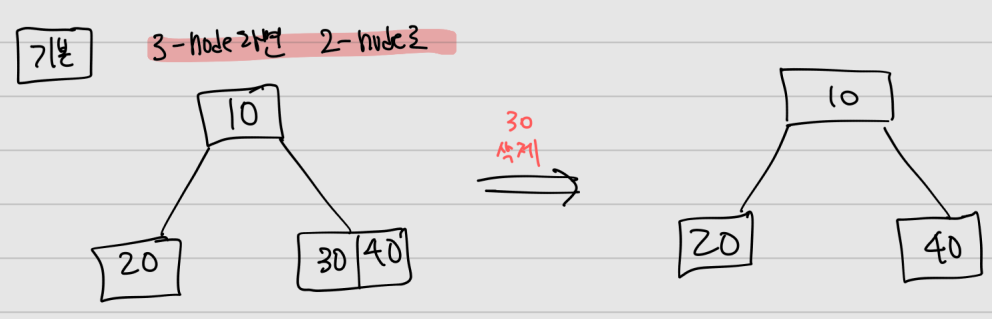 기본
3-node라면 2-node로
10
20
30 40
30
삭제
10
20
40